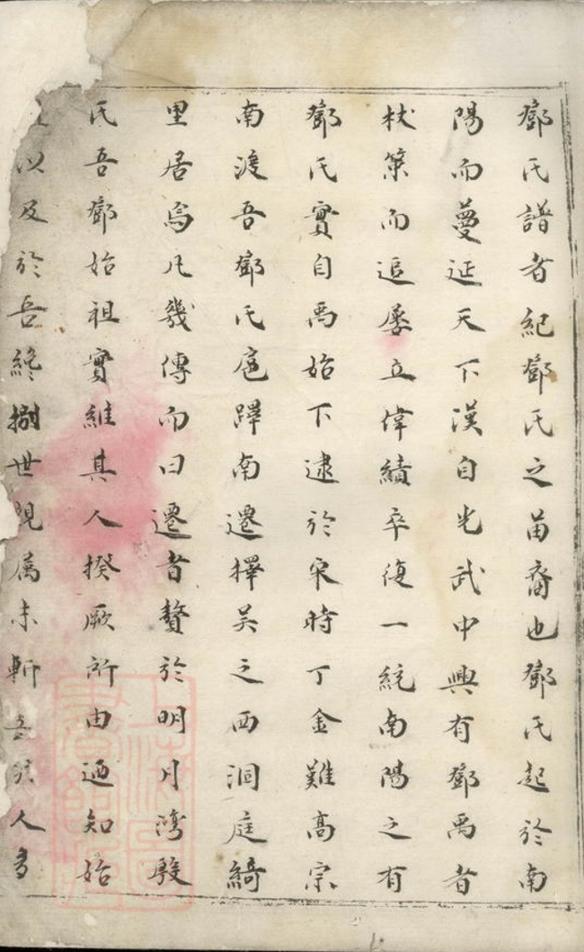 鄧氏譜者紀鄧氏之苗裔也鄧氏起於南
陽而蔓延天下漢自光武中興有鄧禹者
杖策而追屡立偉績卒復一統南陽之有
鄧氏實自禹始下逮於宋時丁金難高宗
南渡吾鄧氏扈蹕南遷擇吴之西洞庭綺
里居焉凡幾傳而曰遷者贅於明月灣殷
氏吾鄧始祖實維其人揆厥所由廼知始
以及於吾終捌世親属未斬吾族人多